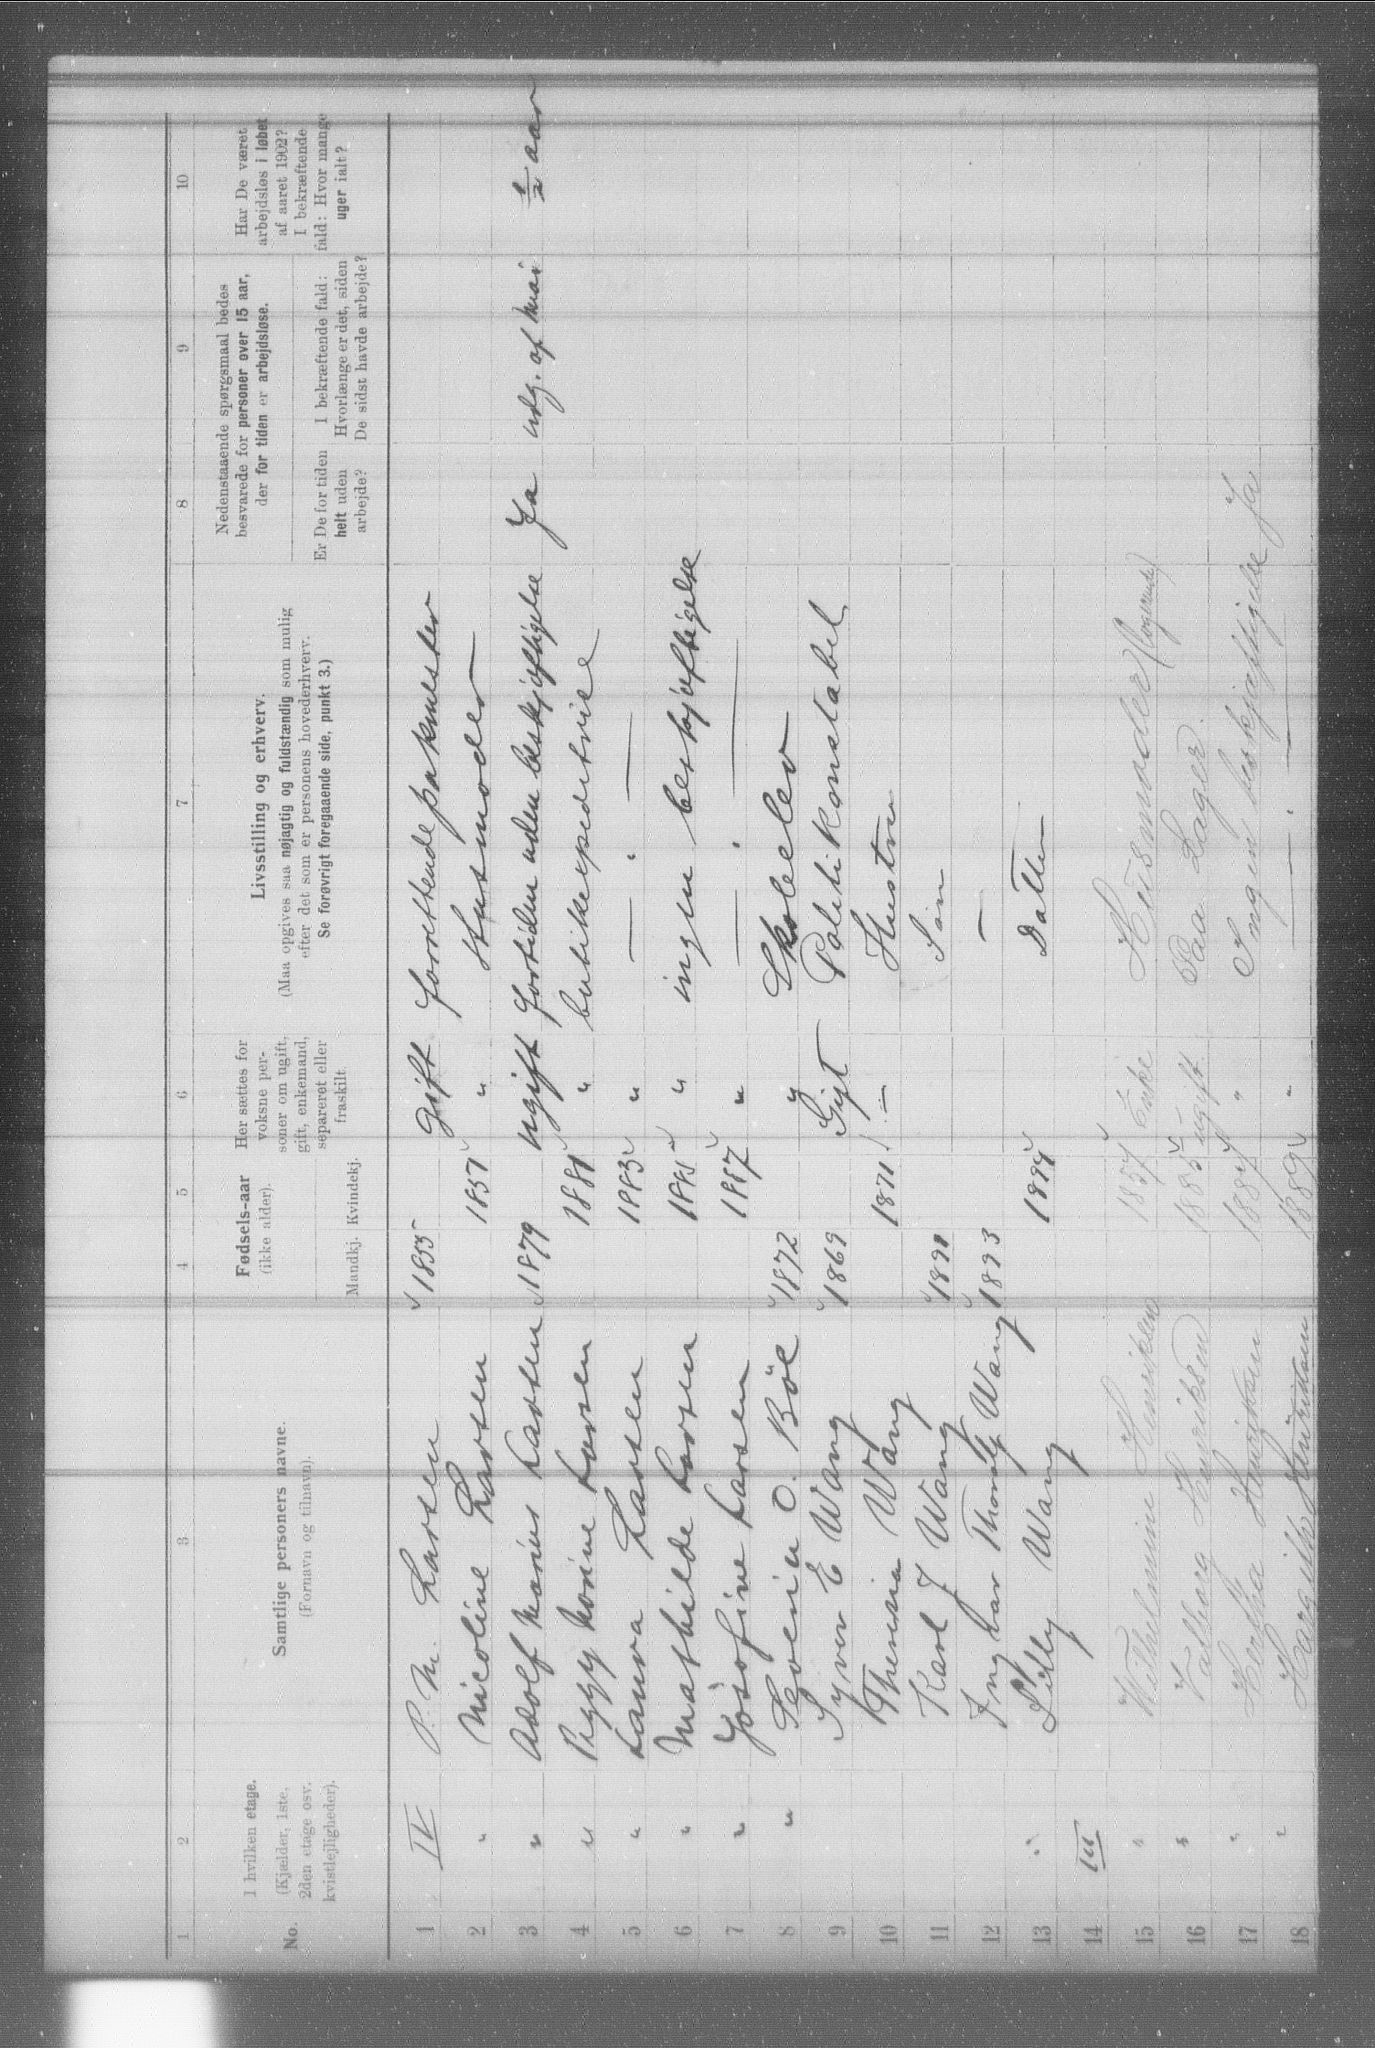 1 2 3 4 5 6 7 8 9 10
No.
I hvilken etage.
(Kjælder, 1ste,
2den etage osv.
kvistlejligheder).
Samtlige personers navne.
(Fornavn og tilnavn).
Fødsels-aar
(ikke alder).
Mandkj. Kvindekj.
Her sættes for
voksne per-
soner om ugift,
gift, enkemand,
separeret eller
fraskilt.
Livsstilling og erhverv.
(Maa opgives saa nøjagtig og fuldstændig som mulig
efter det som er personens hovederhverv.
Se forøvrigt foregaaende side, punkt 3.)
Nedenstaaende spørgsmaal bedes
besvarede for personer over 15 aar,
der for tiden er arbejdsløse.
Er De for tiden
helt uden
arbejde?
I bekræftende fald:
Hvorlænge er det, siden
De sidst havde arbejde?
Har De været
arbejdsløs i løbet
af aaret 1902?
I bekræftende
fald: Hvor mange
uger ialt?
1 IV P. M. Larsen 1855 gift
2 " Nicoline Larsen 1857 " Husmoder
3 " Adolf Marius Larsen 1879 ugift fortiden uden beskjæftigelse Ja udg. af mai ½ aar
4 " Larsen 1881 "
5 " Laura Larsen 1883 " — " —
6 " Mathilde Larsen 1885 " ingen beskjæftigelse
7 " Josefine Larsen 1887 " — " —
8 " O. Böe 1872 " Skoleelev
9 Syver E Wang 1869 Gift Politikonstabel
10 Theresia Wang 1871 — Hustru
11 Karl J Wang Søn
12 Ingvar Thorolf Wang 1893 —
13 " Lilly Wang 1899 Datter
14 III
15 " Wilhelmine Henriksen 1857 Enke Husmoder (Logerende)
16 " Valborg Henriksen 1885 ugift Paa Lager
17 " Hertha Henriksen 1887 " Ingen beskjæftigelse Ja
18 " Henriksen 1889 " — " —